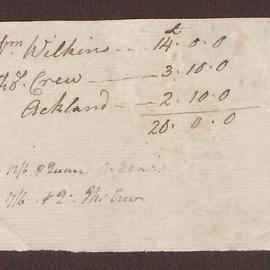 £
Wm Wilkins -- 14.0.0
Thos. Crew --- 3.10.0
Ackland -- 2.10.0
20.0.0
17/6 & 2. Thos Crew